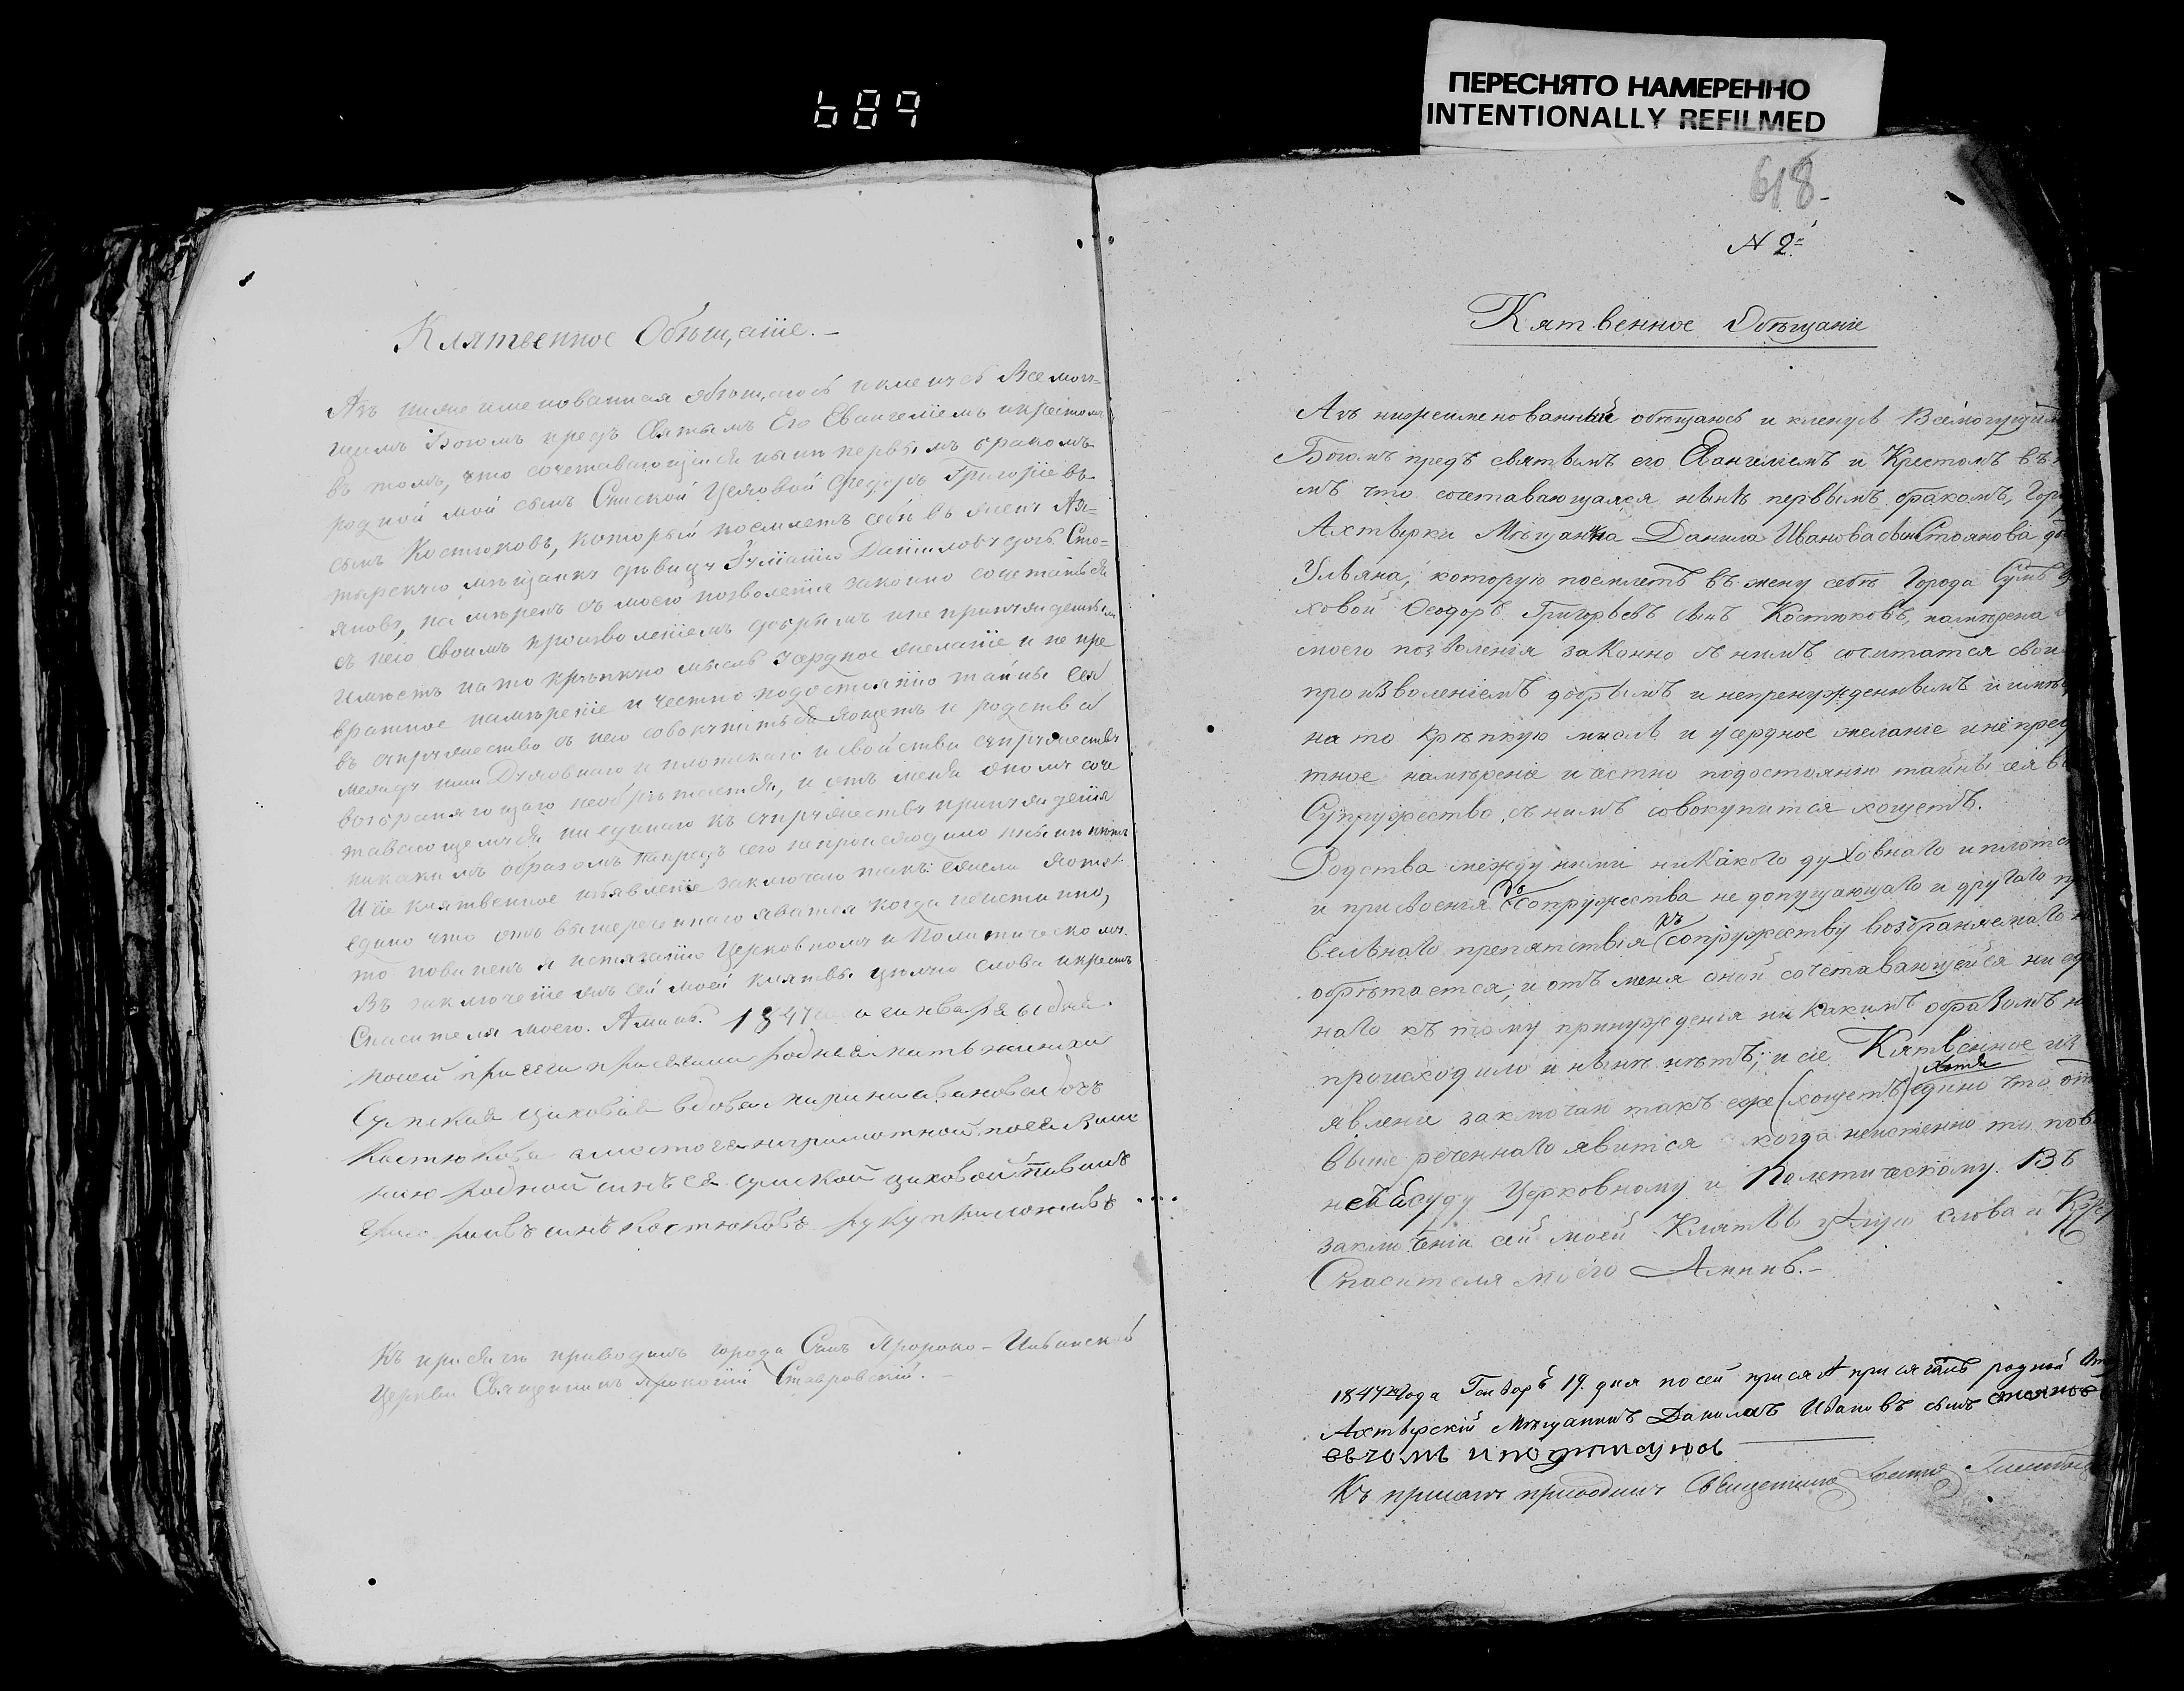 689
ПЕРЕСНЯТО НАМЕРЕННО
INTENTIONALLY REFILMED
Клятвенное Обѣщаніе.
Азъ ниже именованная обѣщаюсь и кленусь Всемогу=
щимъ Богомъ предъ Святымъ Его Евангеліемъ и крестомъ
въ томъ, что сочетавающійся нынѣ первымъ бракомъ
родной мой сынъ Сумской Цеховой Федоръ Григоріевъ
сынъ Костюковъ, который поемлетъ себѣ въ жену Ах=
тырскую мѣщанку дѣвицу Іуліанію Данилову дочь Сто=
янову, намѣренъ съ моего позволенія законно сочетаться
съ нею своимъ произволеніемъ добрымъ и непринужденнымъ
имѣетъ на то крѣпкую мысль усердное желаніе и не пре
вратное намѣреніе и честно по достоянію тайны сея
въ супружество съ нею совокупиться хощетъ и родства
между ими Духовнаго и плотскаго и свойства супружеству
возбраняющаго необрѣтается, и отъ меня оному соче
тавающемуся ни единаго къ супружеству принужденія
никакимъ образомъ напредъ сего непроисходило и нынѣ нѣтъ
И сіе клятвенное изъявленіе заключаю такъ: ежели хотя
едино что отъ вышереченнаго явится когда неистинно,
то повиненъ я истязанію Церковному и Политическому.
Въ заключеніе же сей моей клятвы цѣлую слова и крестъ
Спасителя моего. Аминь. 1847 года генваря дня
посей присеги присегала родная мать жениха
Сумская цеховая вдова Марина Иванова дочь
Костюкова а место ея неграмотной поея
нию родной синъ ея сумской цеховой Павелъ
Григориевъ синъ Костюковъ руку приложилъ
Къ присягѣ приводилъ города Сумъ Пророко-Ильинской
Церкви Священникъ Прокопій Ставровскій.
618
N 2й
Клятвенное Обѣщаніе
Азъ нижеименованный обѣщаюсь и кленусь Всемогущим
Богомъ предъ святымъ его Евангеліемъ и Крестомъ въ
мъ что сочетавающаяся нынѣ первымъ бракомъ, Гор
Ахтырки Мѣщанина Данила Иванова сына Стоянова до
Ульяна, которую поемлетъ въ жену себѣ Города Сумъ
ховой Феодоръ Григорьевъ сынъ Костюковъ, намѣрена
моего позволенія законно съ нимъ сочитатся свои
произволеніемъ добрымъ и непренужденнымъ и имѣ
на то крѣпкую мысль и усердное желаніе и непрев
тное намѣреніе и честно подостоянію тайны сея в
Супружество съ нимъ совокупится хощетъ.
Родства между ними никакого духовнаго и плотс
и присвоенія сопружества не допущающаго и другаго
вельнаго препятствія къ сопружеству возбраняемаго
обрѣтается, и отъ меня оной сочетавающейся ни ед
наго къ тому принужденія никакимъ образомъ н
происходило и нынѣ нѣтъ, и сіе Клятвенное из
хотя
явлени заключаю такъ еже (хощетъ) едино что от
выше реченнаго явится когда неистенно то пов
суду Церковному и Политическому. Въ
заключеніи сей моей Клятвы цѣлую слова и Кре
Спасителя моего Аминь.
1847го года Генваря 19. дня посей присяги присягалъ родной
Ахтырскій Мѣщанинъ Данила Ивановъ сынъ Стоянов
въ чомъ и подпишуюсь
Къ присягѣ приводилъ Священникъ